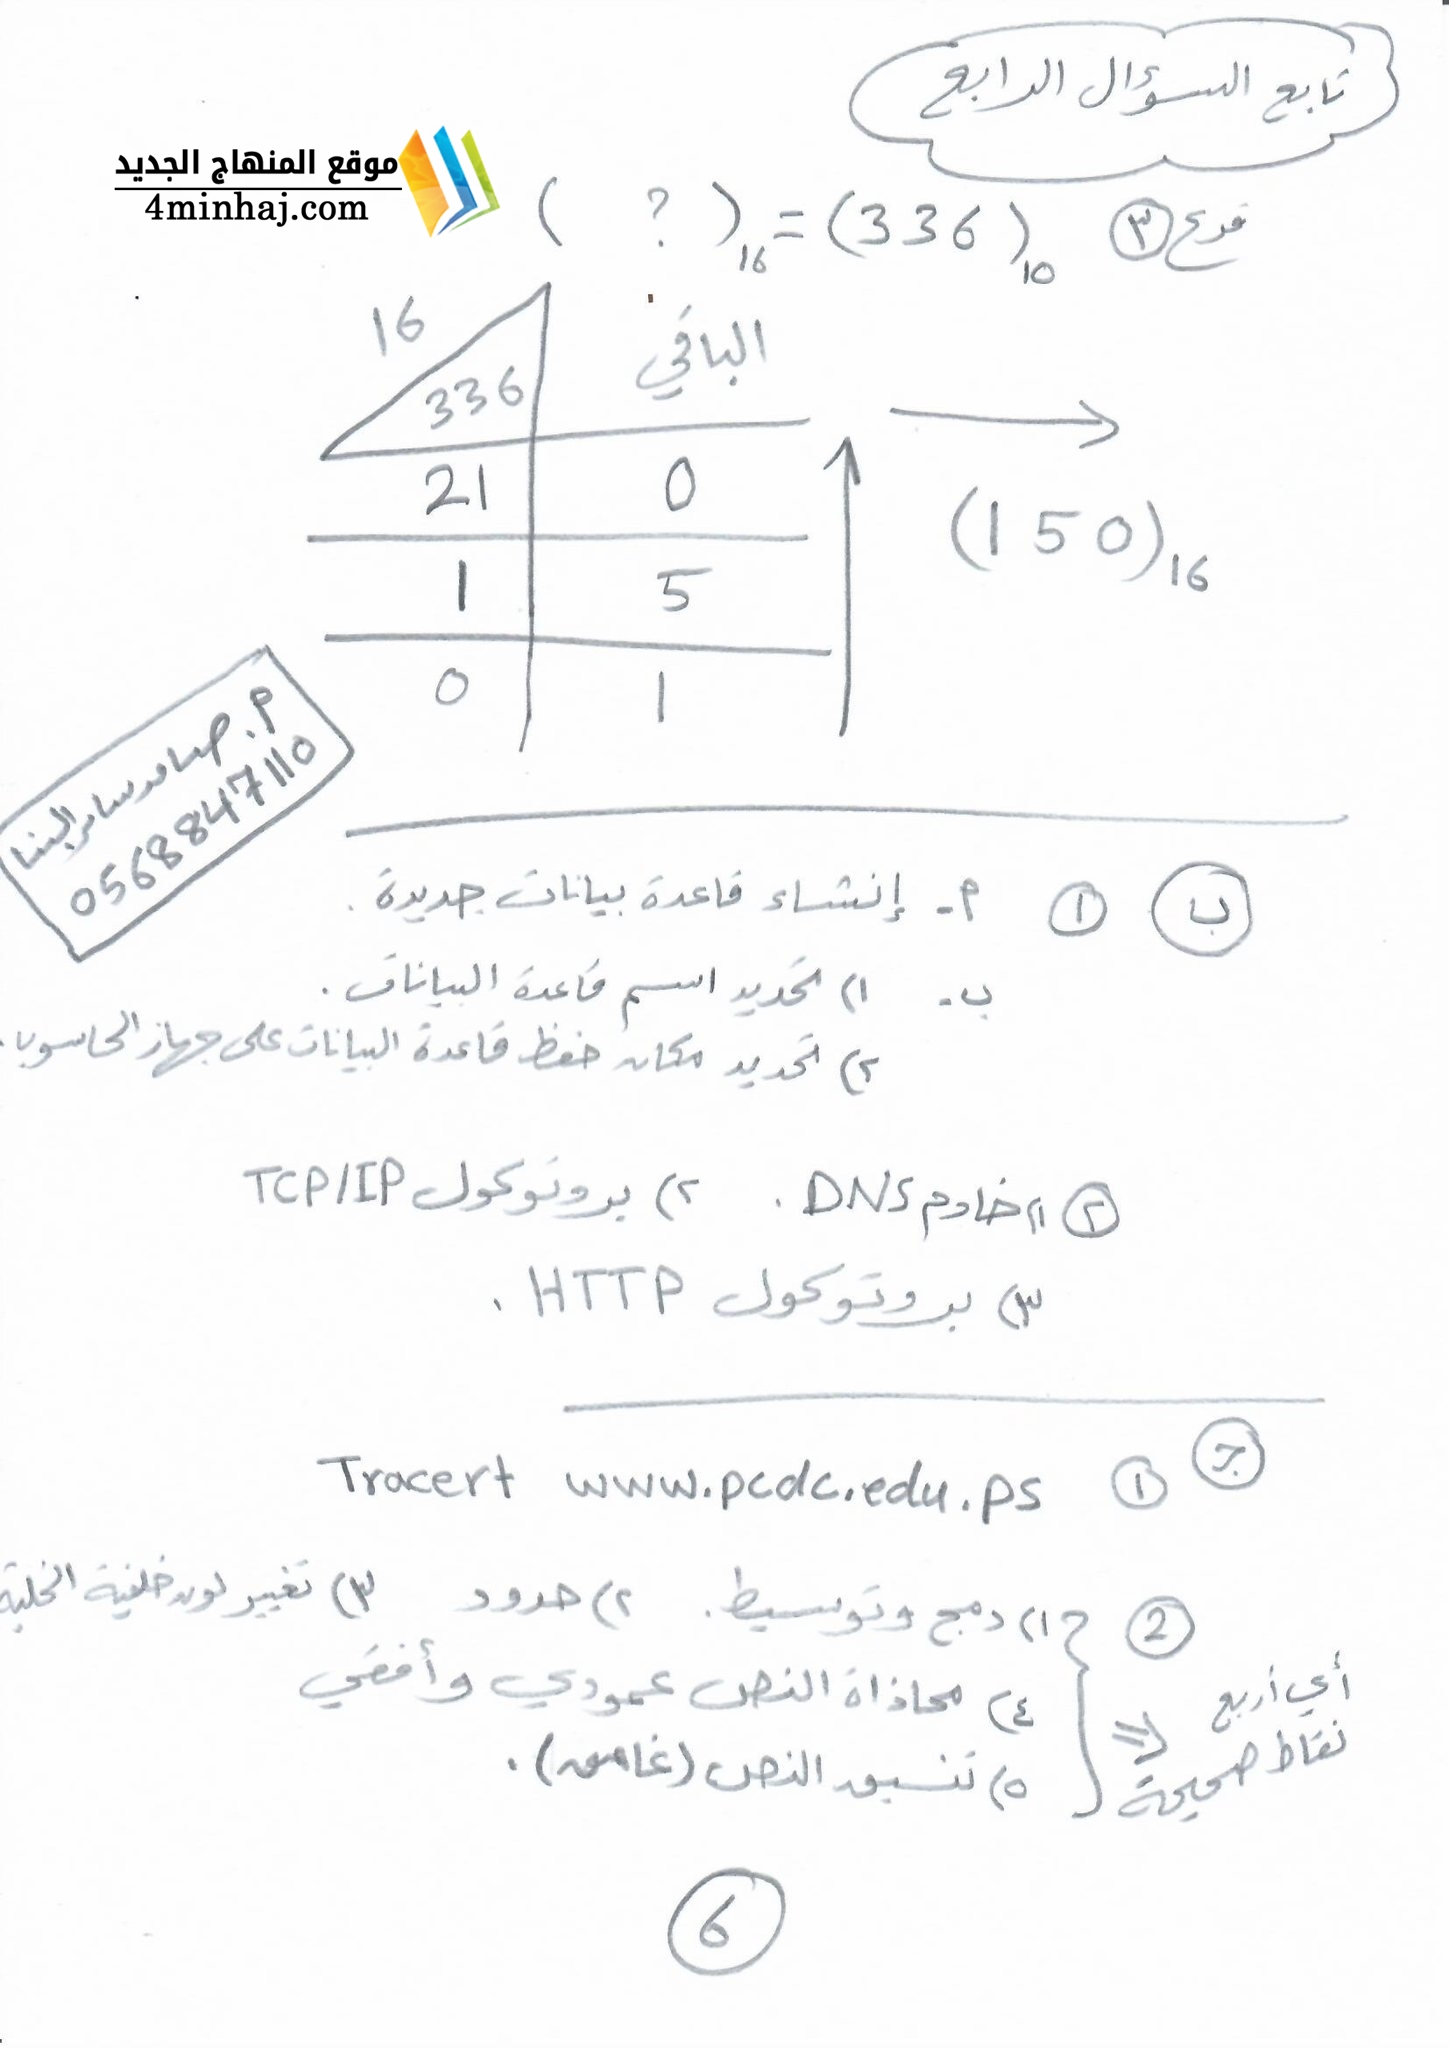 تابع السؤال الرابع
موقع المنهاج الجديد
4minhaj.com
فرع ٣ (336)10 = ( ? )16
16
336 الباقي
21 0
1 5
0 1
(150)16
0568847110
ب ١ أ- إنشاء قاعدة بيانات جديدة.
ب- ١) تحديد اسم قاعدة البيانات.
٢) تحديد مكان حفظ قاعدة البيانات على جهاز الحاسوب.
٢ ١) خادم DNS. ٢) بروتوكول TCP/IP
٣) بروتوكول HTTP.
ج ١ Tracert www.pcdc.edu.ps
2 ١) دمج وتوسيط. ٢) حدود ٣) تغيير لون خلفية الخلية
٤) محاذاة النص عمودي وأفقي
٥) تنسيق النص (غامق).
أي أربع
نقاط صحيحة
6